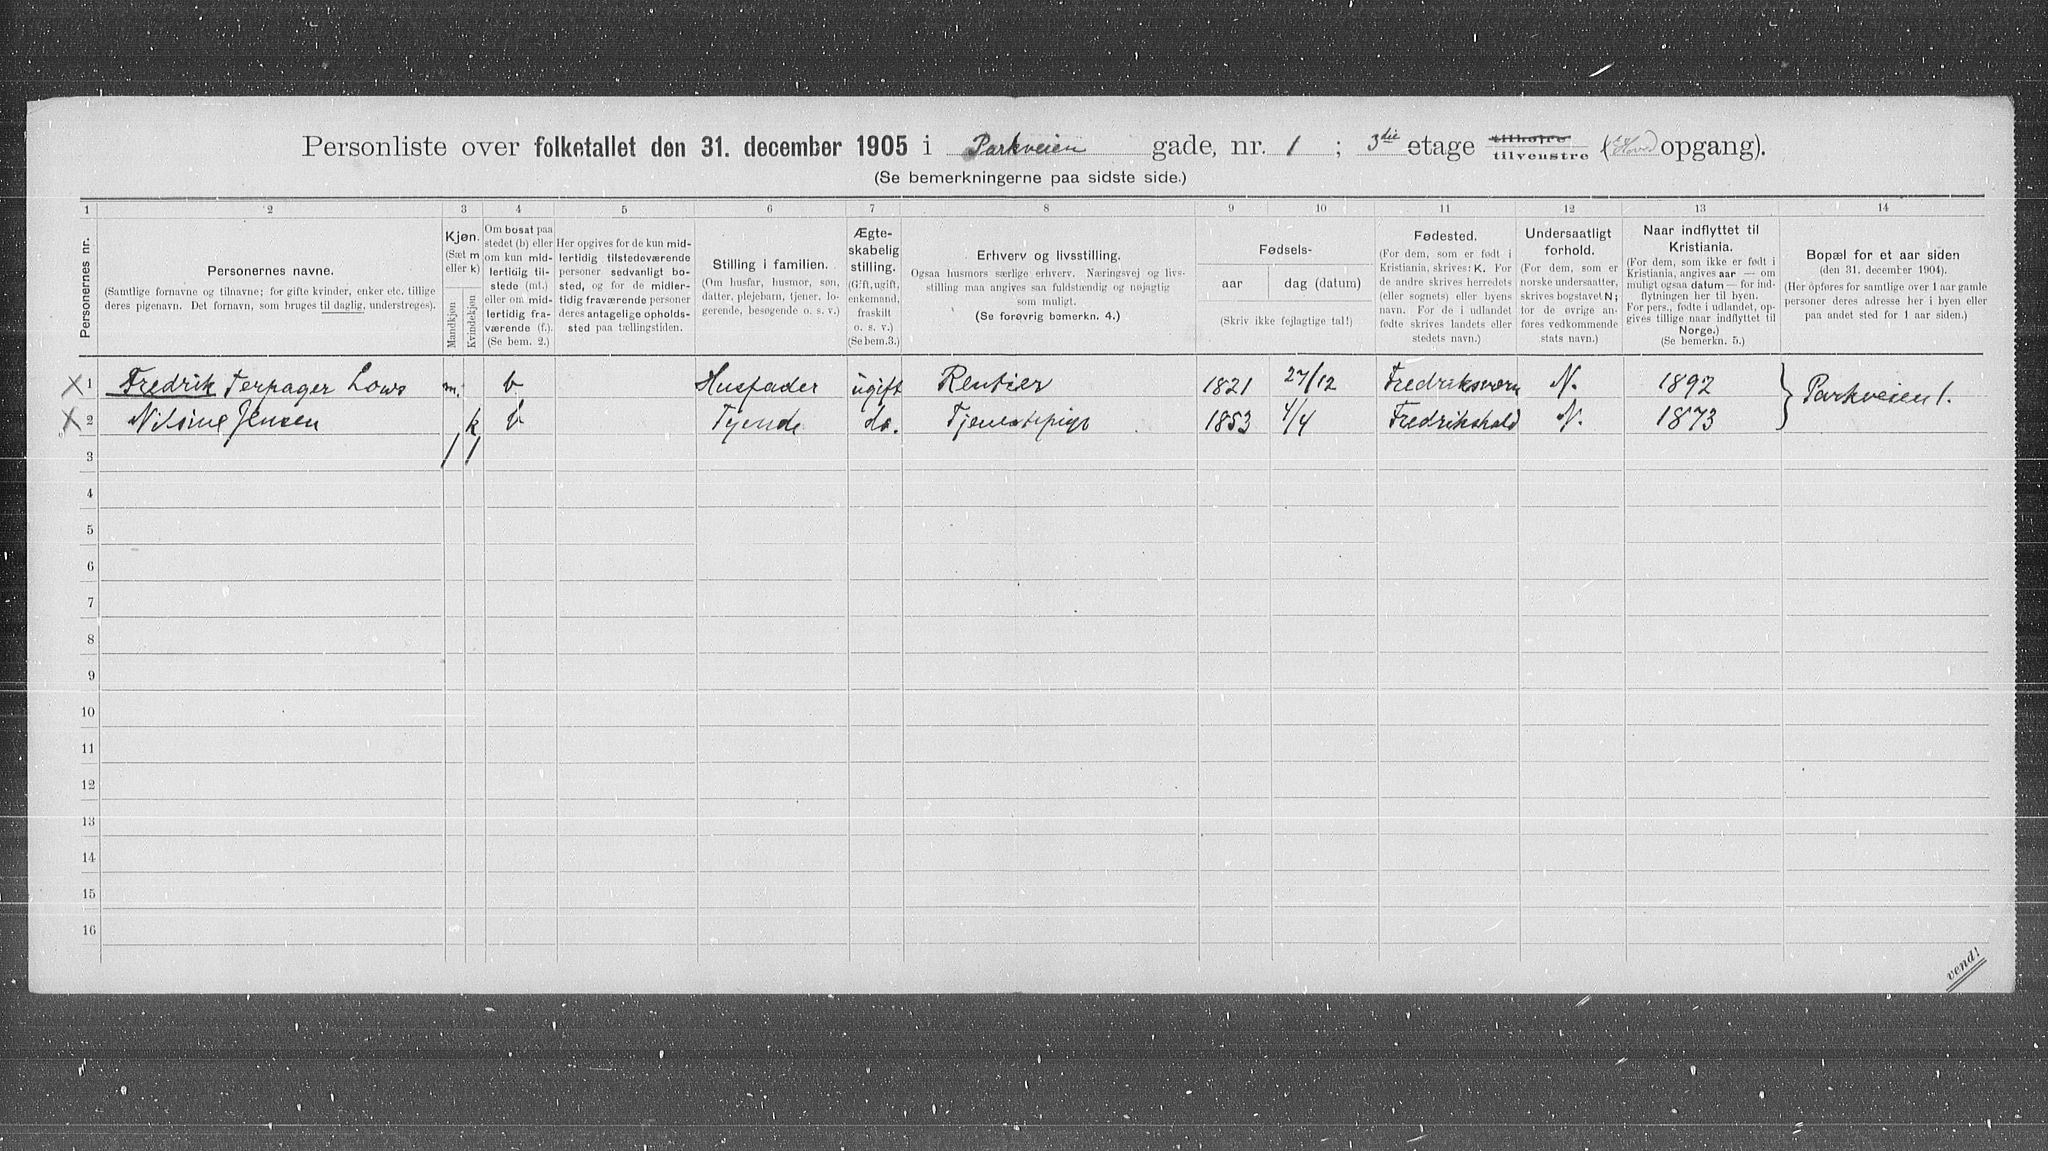 Personliste over folketallet den 31. december 1905 i Parkveien gade, nr. 1 ; 3die etage tilhøjre tilvenstre (Hoved opgang).
(Se bemerkningerne paa sidste side.)
1 2 3 4 5 6 7 8 9 10 11 12 13 14
Personernes nr.
Personernes navne.
(Samtlige fornavne og tilnavne; for gifte kvinder, enker etc. tillige
deres pigenavn. Det fornavn, som bruges til daglig, understreges).
Kjøn.
(Sæt m
eller k)
Mandkjøn
Kvindekjøn
Om bosat paa
stedet (b) eller
om kun mid-
lertidig til-
stede (mt.)
eller om mid-
lertidig fra-
værende (f.).
(Se bem. 2.)
Her opgives for de kun mid-
lertidig tilstedeværende
personer sedvanlig bo-
sted, og for de midler-
tidig fraværende personer
deres antagelige opholds-
sted paa tællingstiden.
Stilling i familien.
(Om husfar, husmor, søn,
datter, plejebarn, tjener, lo-
gerende, besøgende o. s. v.)
Ægte-
skabelig
stilling.
(Gift, ugift,
enkemand,
fraskilt
o. s. v.)
(Se bem.3.)
Erhverv og livsstilling.
Ogsaa husmors særlige erhverv. Næringsvej og livs-
stilling maa angives saa fuldstændig og nøjagtig
som muligt.
(Se forøvrig bemerkn. 4.)
Fødsels-
aar dag (datum)
(Skriv ikke fejlagtige tal!)
Fødested.
(For dem, som er født i
Kristiania, skrives: K. For
de andre skrives herredets
(eller sognets) eller byens
navn. For de i udlandet
fødte skrives landets eller
stedets navn.)
Undersaatligt
forhold.
(For dem, som er
norske undersaatter,
skrives bogstavet N;
for de øvrige an-
føres vedkommende
stats navn.)
Naar indflyttet til
Kristiania.
(For dem, som ikke er født i
Kristiania, angives aar — om
muligt ogsaa datum — for ind-
flytningen her til byen.
For pers., fødte i udlandet, op-
gives tillige naar indflyttet til
Norge.)
(Se bemerkn. 5.)
Bopæl for et aar siden
(den 31. december 1904).
(Her opføres for samtlige over 1 aar gamle
personer deres adresse her i byen eller
paa andet sted for 1 aar siden.)
X 1 Fredrik Terpager Lows m. b Husfader ugift Rentier 1821 27/12 Fredriksværn N. 1892 } Parkveien 1.
X 2 Nilsine Jensen k b Tjende do. Tjenestepige 1853 4/4 Fredrikshald N. 1873
3 / /
4
5
6
7
8
9
10
11
12
13
14
15
16
vend!